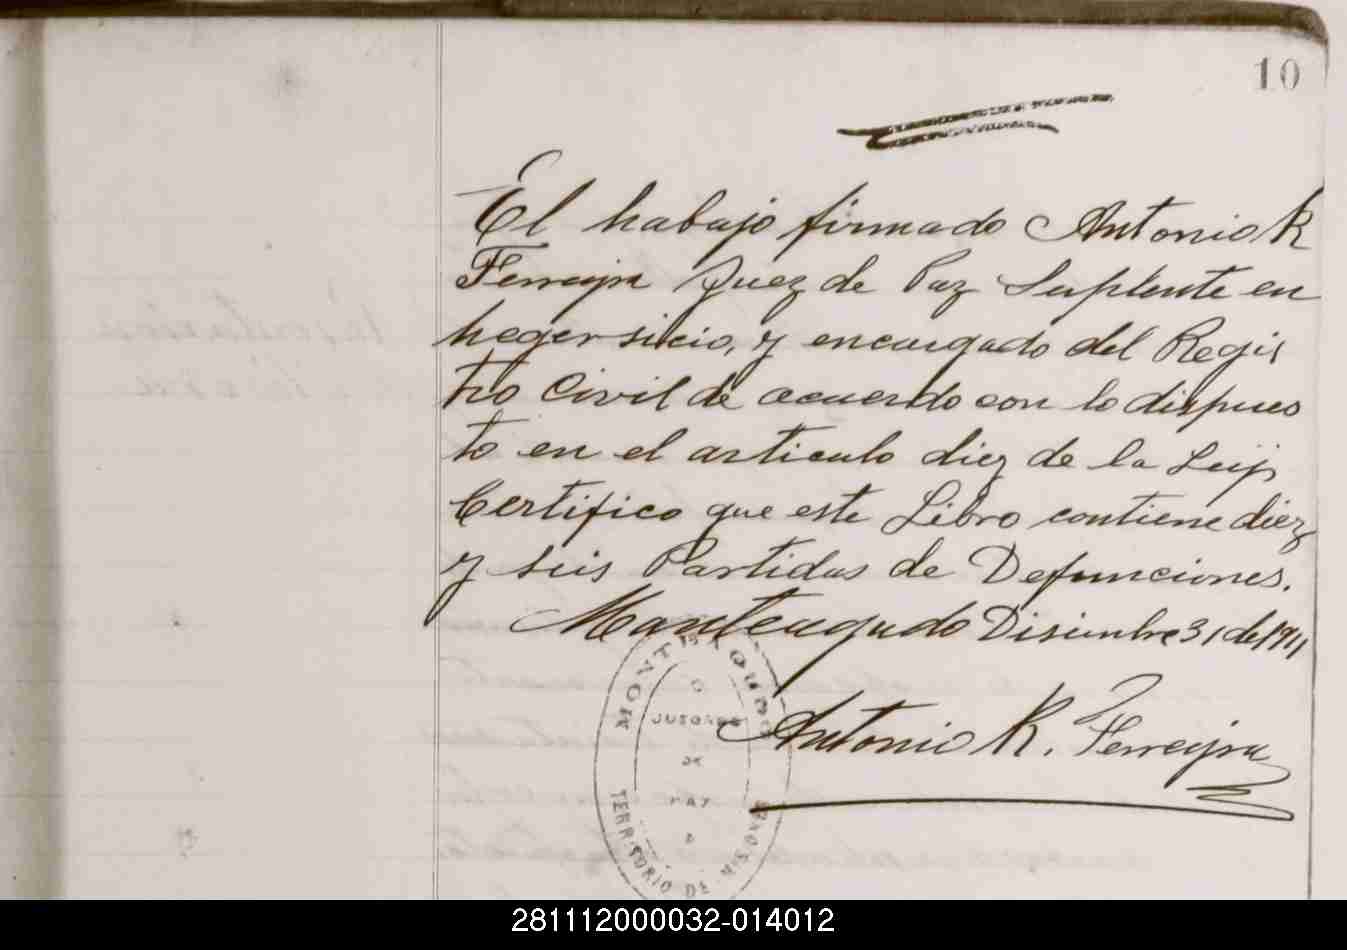 10
El habajo firmado Antonio R
Ferreyra Juez de Paz Suplente en
hegersicio, y encargado del Regis
tro Civil de acuerdo con lo dispues
to en el articulo diez de la Leip
Certifico que este Libro contiene diez
y seis Partidas de Defunciones.
Monteagudo Disiembre 31 de 1911
Antonio R. Ferreyra
MONTEAGUDO
JUZGADO
DE
PAZ
TERRITORIO DE MISIONES
281112000032-014012